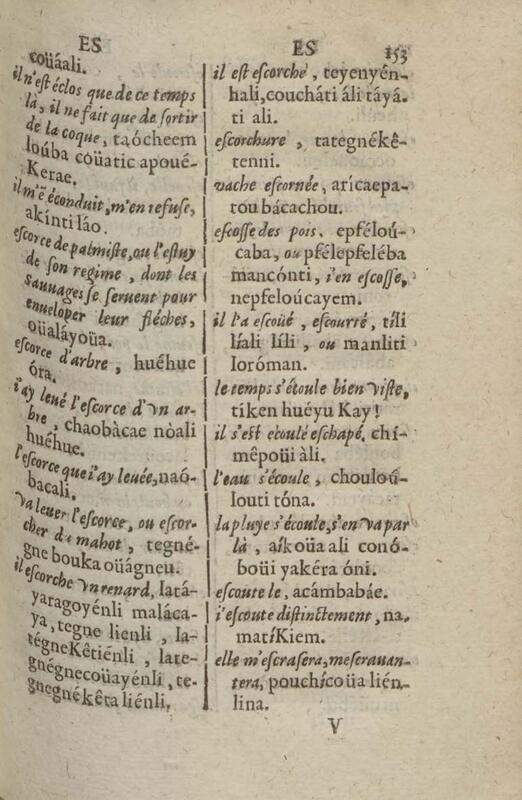 ES
coüáali.
il n'est éclos que de ce temps
là, il ne fait que de sortir
de la coque, taócheem
loúba coüatic apoué-
Kerae.
il m'ē éconduit, m'en refuse,
akínti láo.
escorce de palmiste, ou l'estuy
de son regime, dont les
Sauuages se seruent pour
enueloper leur fléches,
oüaláyoüa.
escorce d'arbre, huéhue
óra.
i'ay leué l'escorce d'vn ar-
bre, chaobàcae nòali
huéhue.
l'escorce que i'ay leuée, naó-
bacali.
va leuer l'escorce, ou escor-
cher du mahot, tegné-
gne bouka oüágneu.
il escorche vn renard, latá-
yaragoyénli maláca-
ya, tegne lienli, la-
tégneKêtiénli, late-
gnégnecoüayénli, te-
gnegnékêta liénli.
ES 153
il est escorché, teyenyén-
hali, coucháti áli táyá-
ti ali.
escorchure, tategnékê-
tenni.
vache escornée, arícaepa-
tou bácachou.
escosse des pois, epféloú-
caba, ou pfélepfeléba
mancónti, i'en escosse,
nepfeloúcayem.
il l'a escoüé, escourré, tíli
líali líli, ou manliti
loróman.
le temps s'écoule bien viste,
tíken huéyu Kay!
il s'est écoulé eschapé, chí-
mêpoüi àli.
l'eau s'écoule, chouloú-
louti tóna.
la pluye s'écoule, s'en va par
là, aíkoüa ali conó-
boüi yakéra óni.
escoute le, acámbabáe.
i'escoute distinctement, na-
matíKiem.
elle m'escrasera, m'escrauan-
tera, pouchícoüa lién-
lina.
V